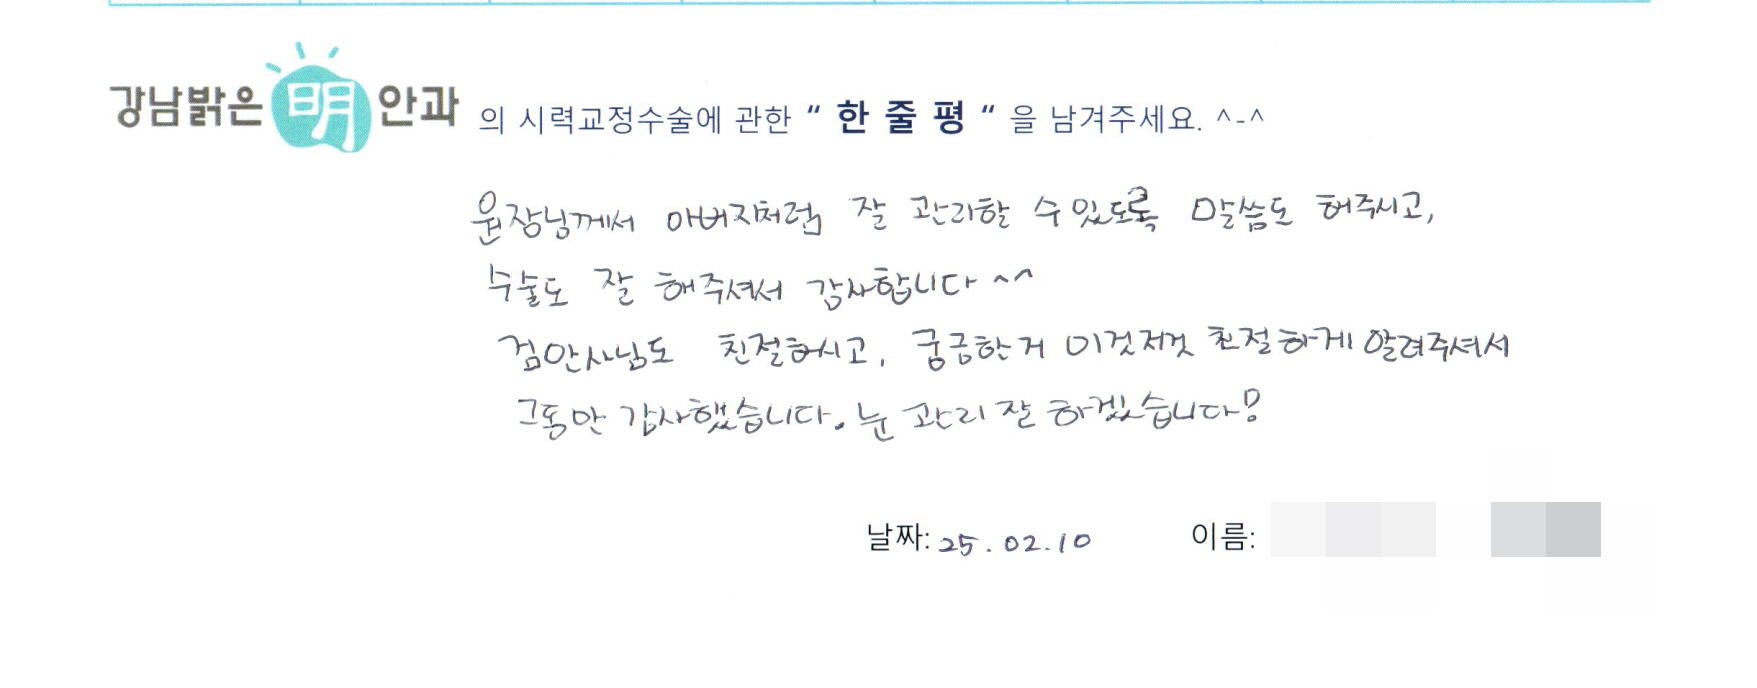 강남밝은 明 안과 의 시력교정수술에 관한 “ 한 줄 평 “ 을 남겨주세요. ^-^
원장님께서 아버지처럼 잘 관리할 수있도록 말씀도 해주시고,
수술도 잘 해주셔서 감사합니다 ^^
검안사님도 친절하시고, 궁금한거 이것저것 친절하게 알려주셔서
그동안 감사했습니다. 눈 관리 잘 하겠습니다!
날짜: 25.02.10 이름: